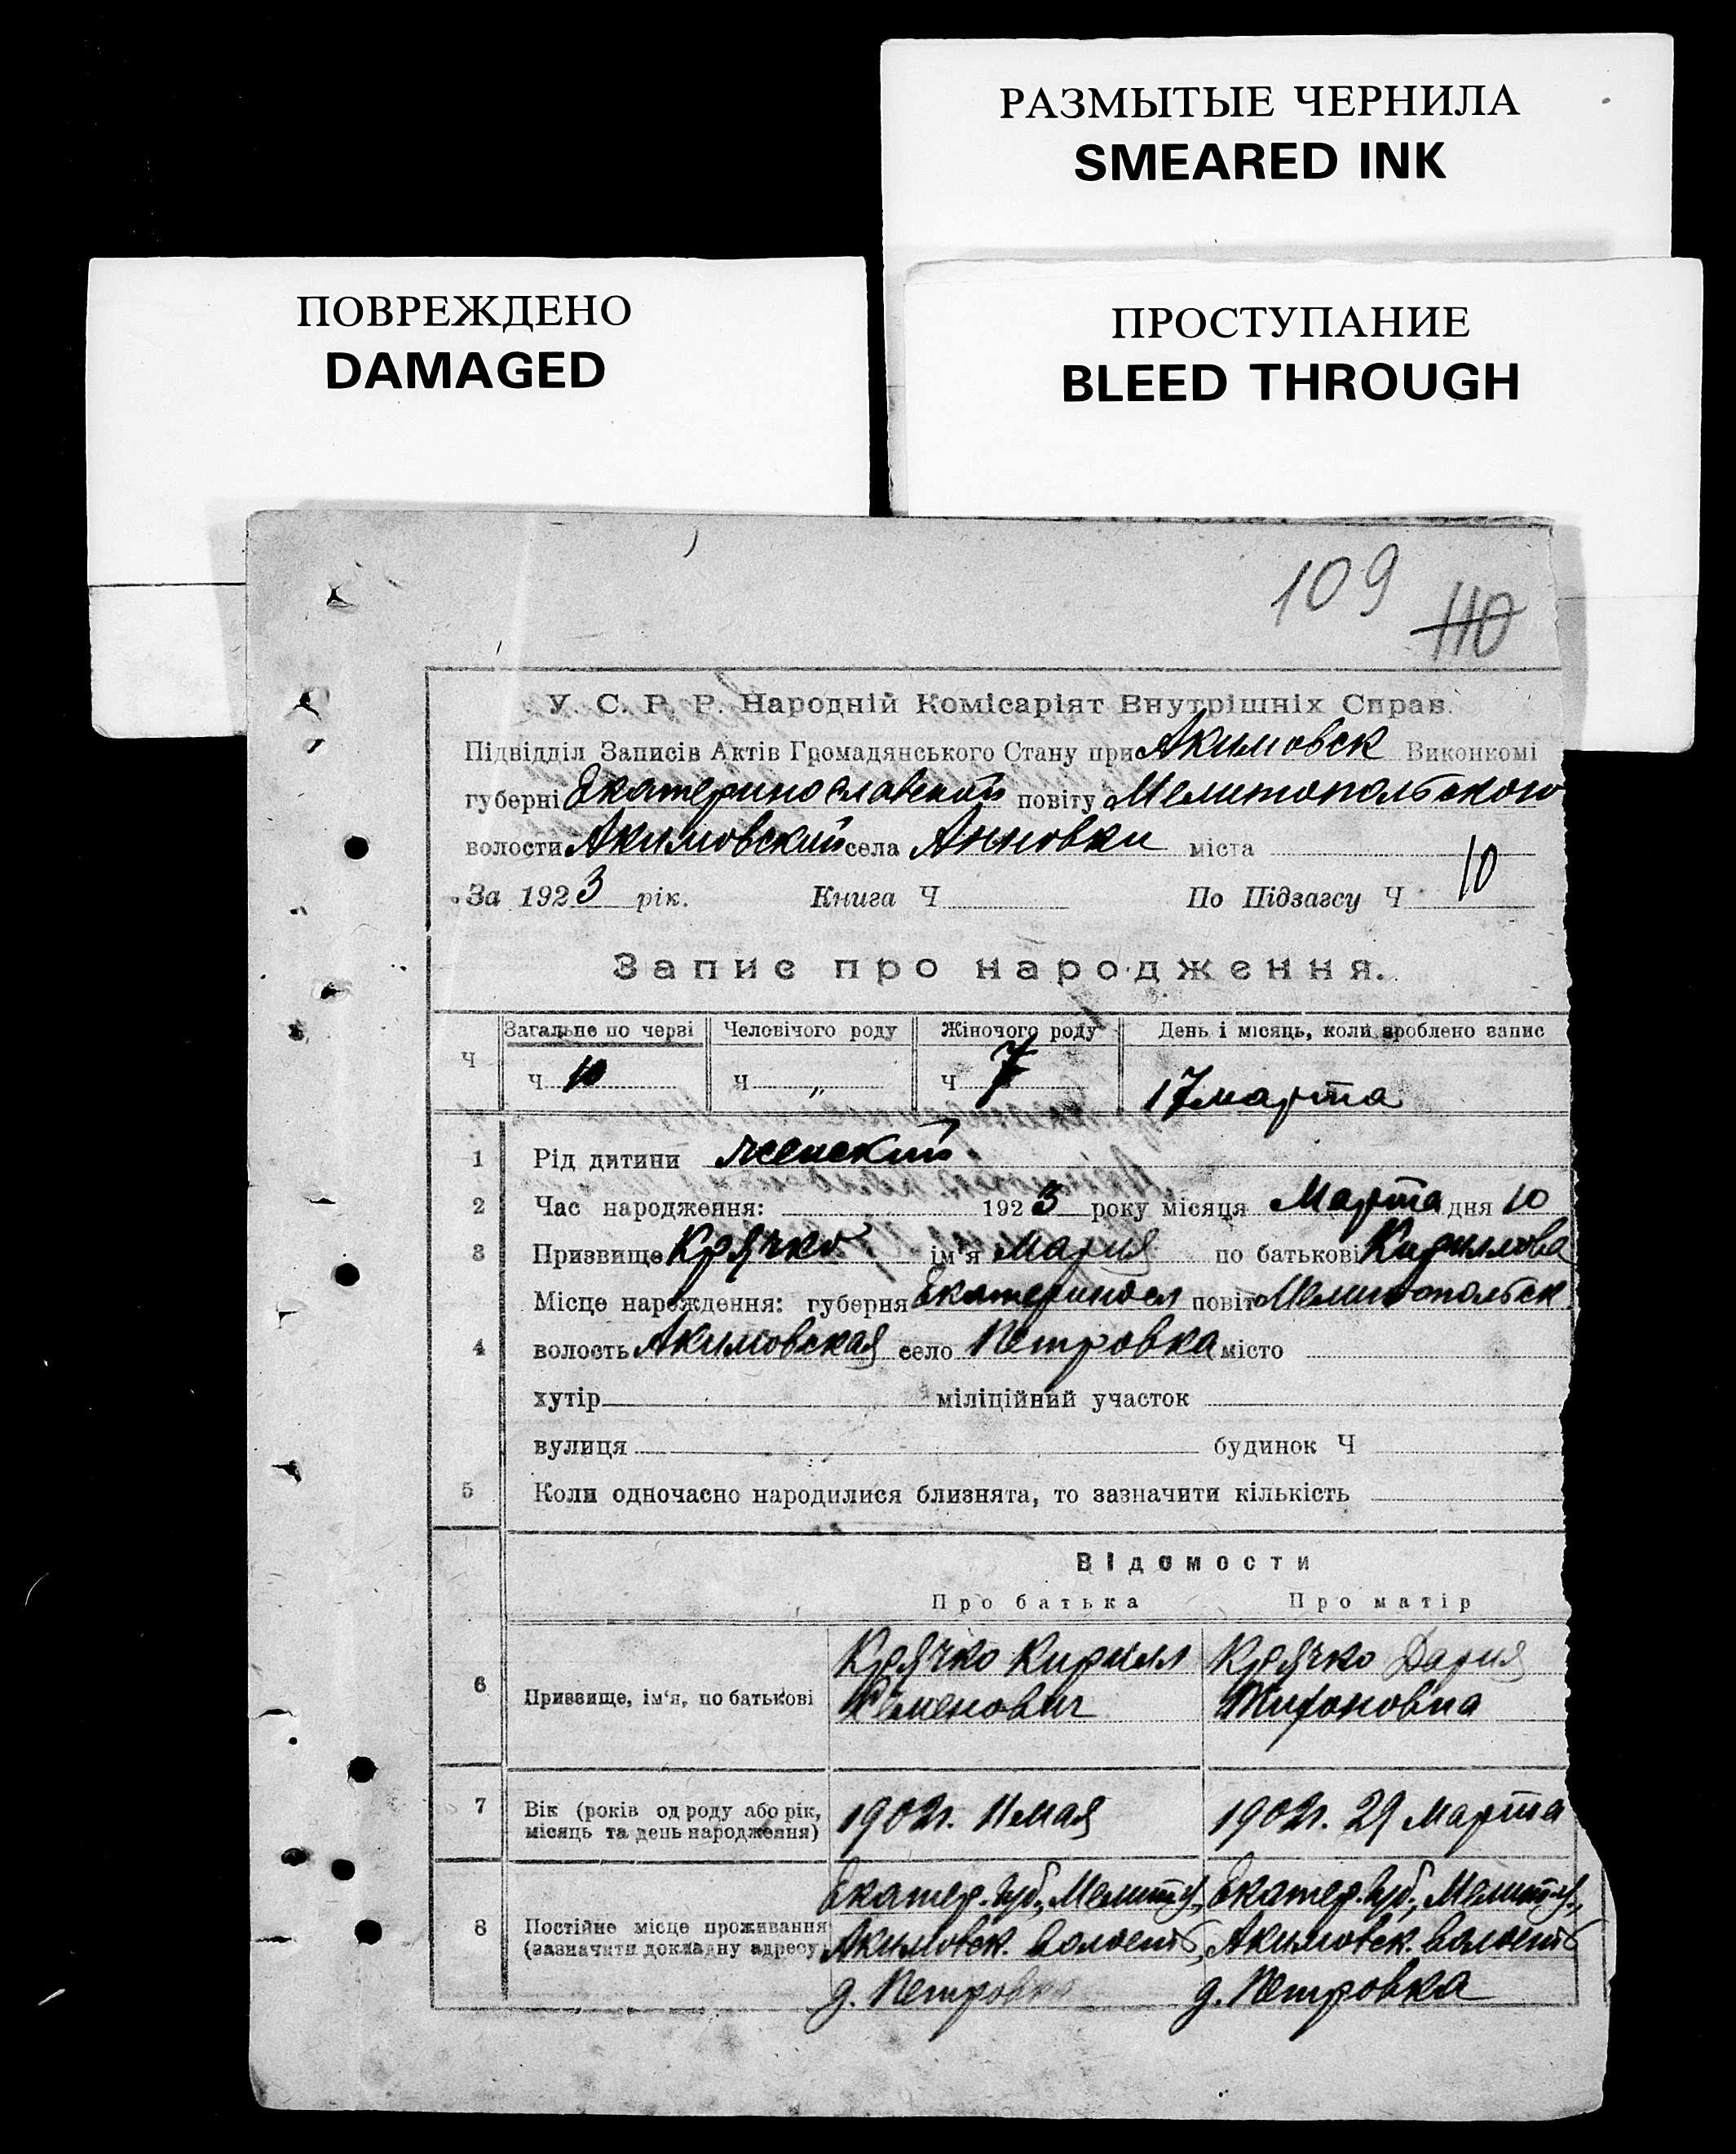 РАЗМЫТЫЕ ЧЕРНИЛА
SMEARED INK
ПОВРЕЖДЕНО
DAMAGED
ПРОСТУПАНИЕ
BLEED THROUGH
109
110
У. С. Р. Р. Народній Комісаріят Внутрішніх Справ.
Підвідділ Записів Актів Громадянського Стану при Акимовск Виконкомі
губерні Екатеринославский повіту Мелитопольского
волости Акимовский села Анновки міста
За 1923 рік. Книга Ч По Підзагсу Ч 10
Запис про народження.
Загальне по черзі Человічого роду Жіночого роду День і місяць, коли зроблено запис
Ч Ч 10 Ч „ Ч 7 17 марта
1 Рід дитини женский
2 Час народження: 1923 року місяця Марта дня 10
3 Призвище Крячко ім'я Мария по батькові Кириллова
Місце народження: губерня Екатериносл повіт Мелитопольск
4 волость Акимовская село Петровка місто
хутір міліційний участок
вулиця будинок Ч
5 Коли одночасно народилися близнята, то зазначити кількість
Відомости
Про батька Про матір
6 Призвище, ім'я, по батькові Крячко Кирилл Семенович Крячко Дария
7 Вік (років од роду або рік, місяць та день народження) 1902г. 11 мая 1902г. 29 Марта
8 Постійне місце проживання (зазначити докладну адресу) Екатер. губ., Мелит. у., Акимовск. волость, д. Петровка Екатер. губ., Мелит. у., Акимовск. волость д. Петровка